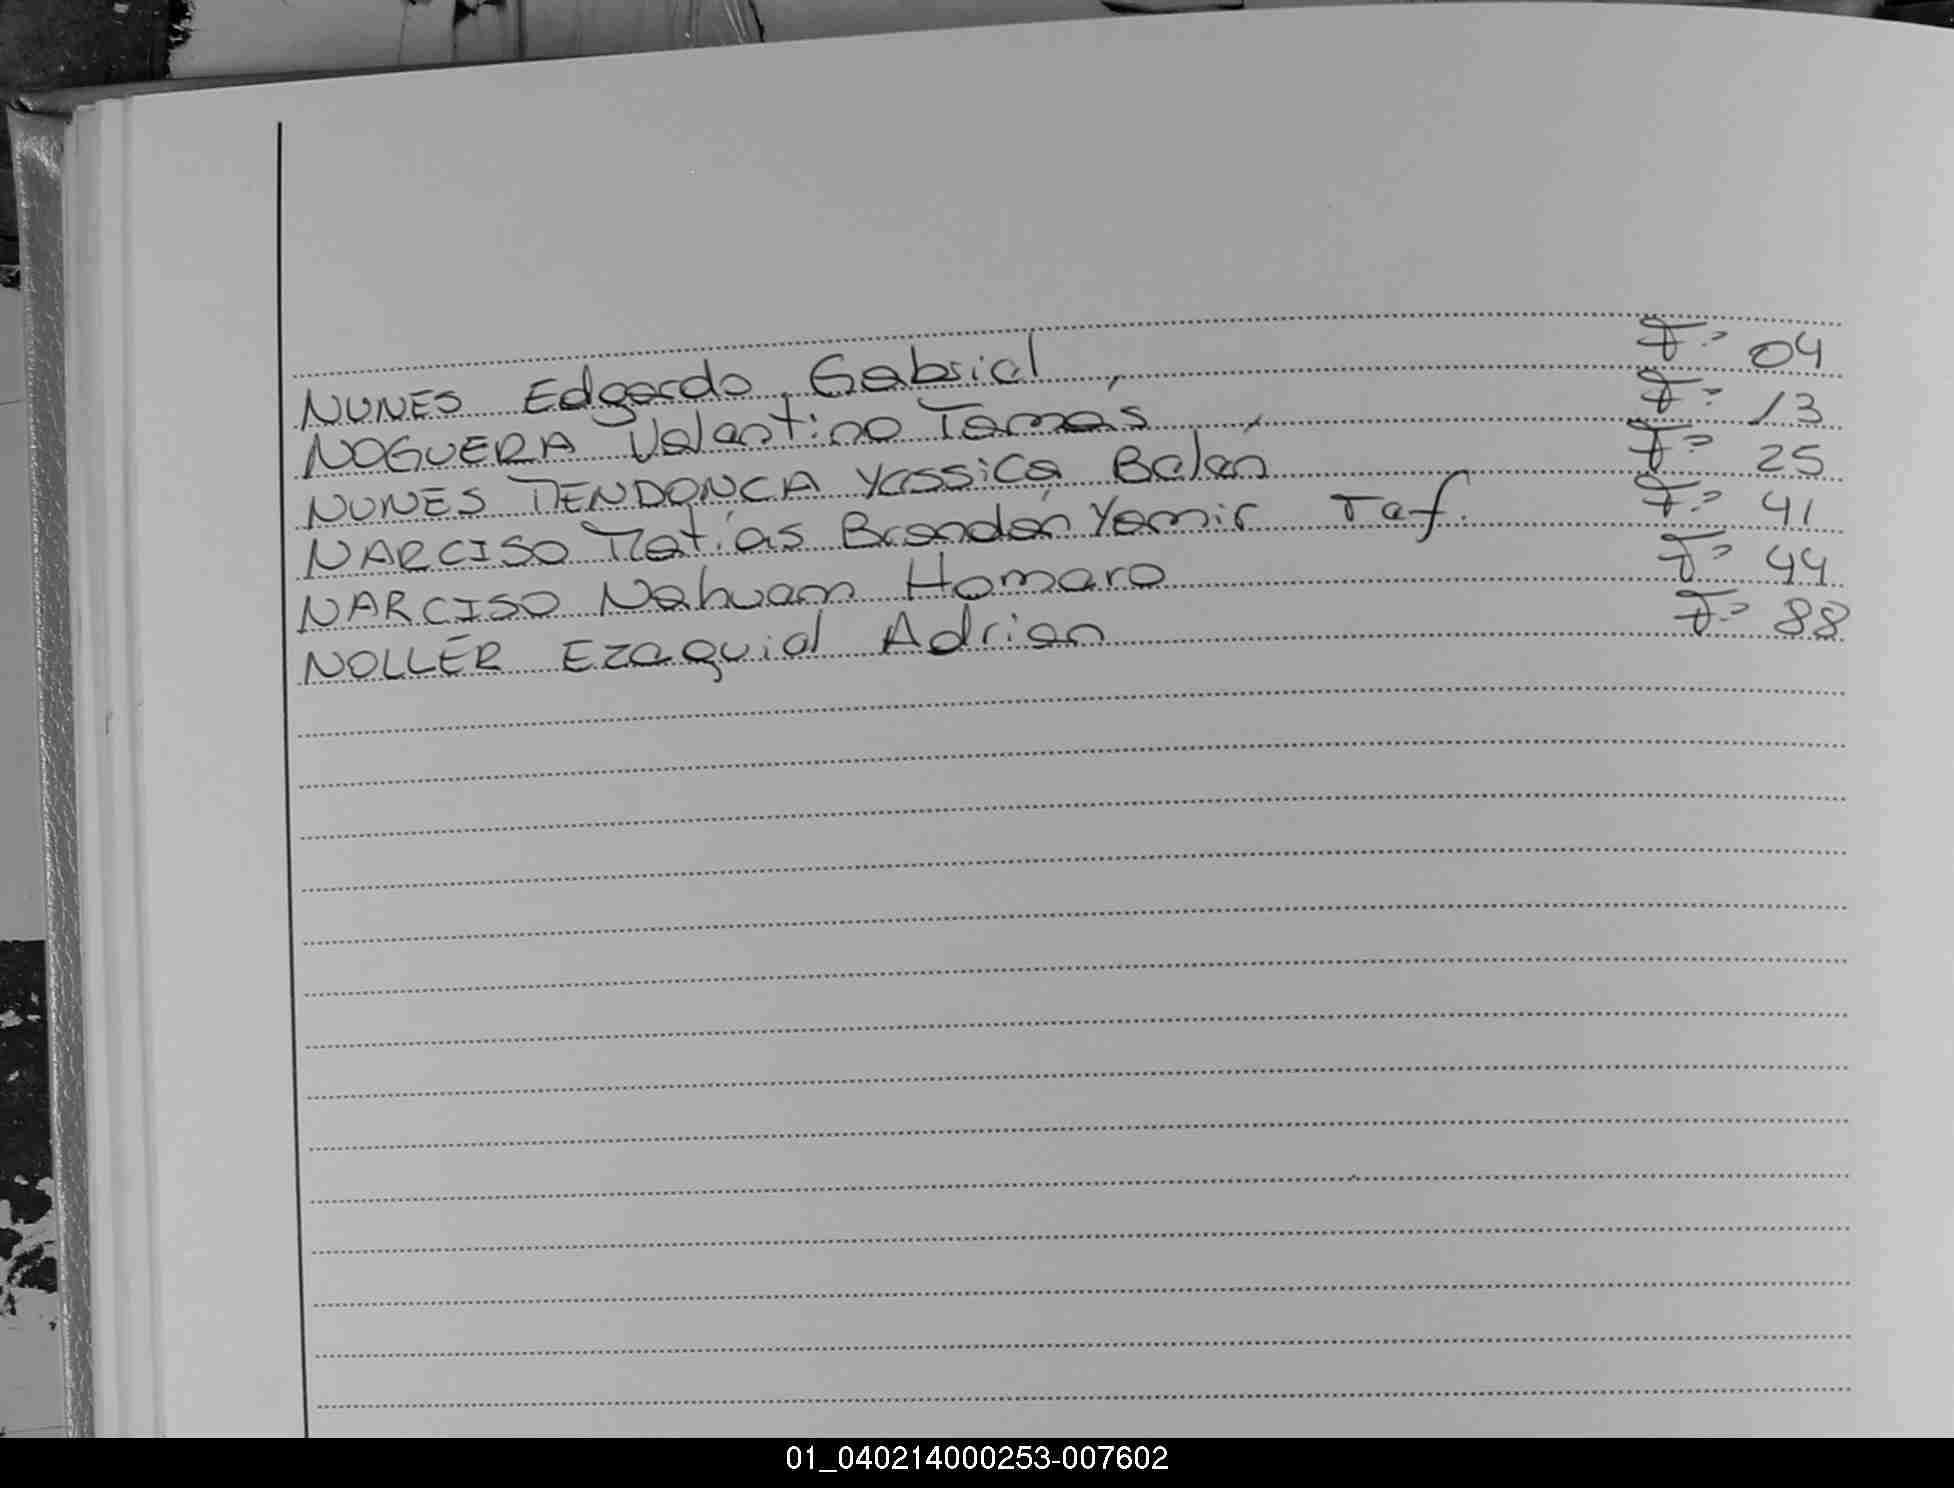 NUNES Edgardo Gabriel Fº 04
NOGUERA Valentino Tomás Fº 13
NUNES MENDONCA Yessica Belén Fº 25
NARCISO Matías Brandon Yamir Tef. Fº 41
NARCISO Nahuem Homero Fº 44
NOLLER Ezequiel Adrian Fº 88
01_040214000253-007602